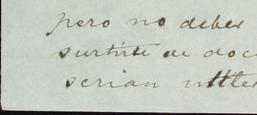 pero no deber
surtirse de doc
serian